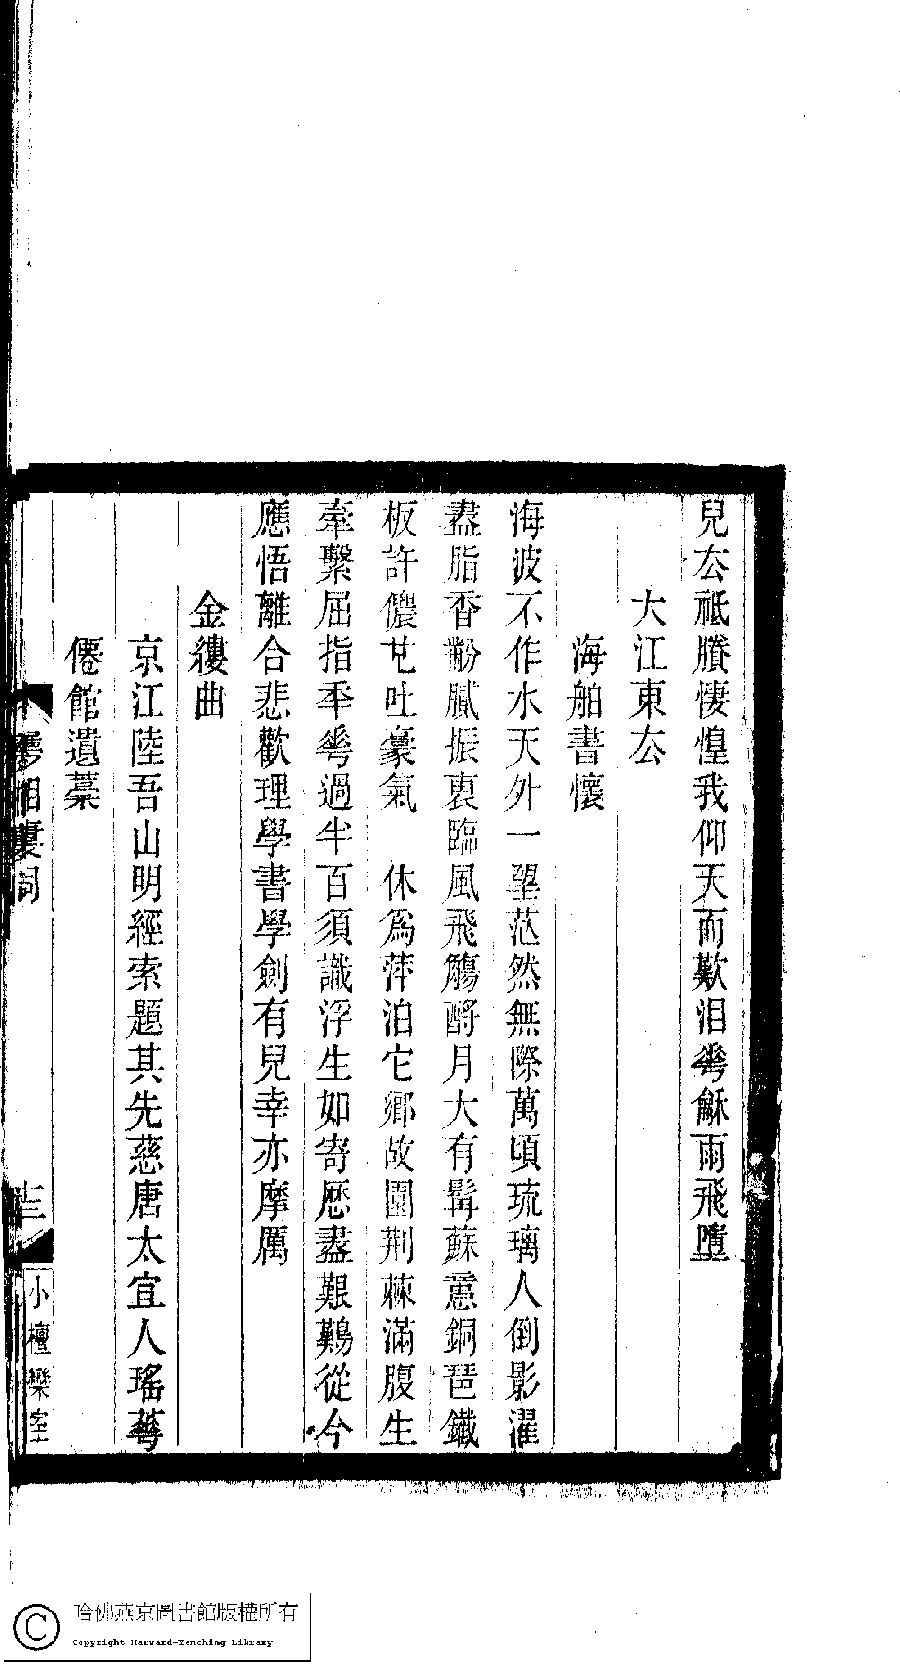 兒厺祗賸悽惶我仰天而歎泪蕐龢雨飛墮
大江東厺
海舶書懷
海波不作水天外一朢茫然無際萬頃琉璃人倒影濯
盡脂香黺膩振衷臨風飛觴酹月大有髯蘇意銅琶鐵
板許儂𠀍吐豪氣　休為萍泊它鄉故園荆棘滿腹生
牽繫屈指秊蕐過半百須識浮生如寄歷盡艱鷄從今
應悟離合悲歡理學書學劍有兒幸亦摩厲
金縷曲
京江陸吾山明經索題其先慈唐太宜人瑤蕐
僊館遺藁
夢湘廔詞
十三
小檀欒室
哈佛燕京圖書館版權所有
Copyright Harvard-Yenching Library